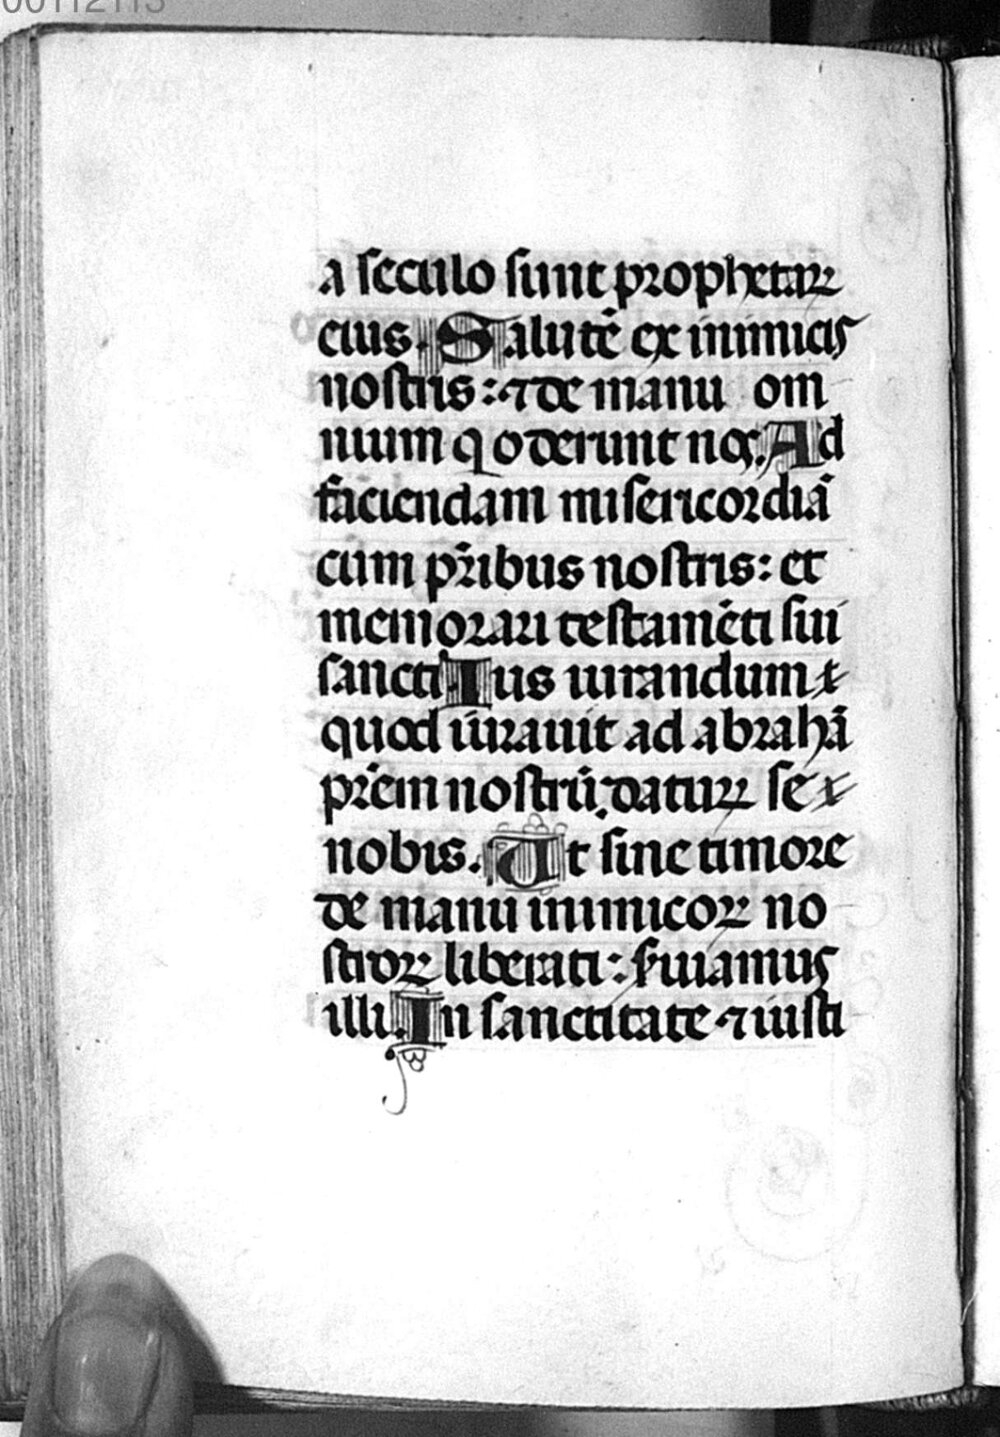 00112113
a seculo sunt prophetaꝝ
eius. Salutē ex inimicis
nostris: ⁊ de manu om
nium q oderunt nos. Ad
faciendam misericordiā
cum pr̄ibus nostris: et
memorari testamēti sui
sancti. Ius iurandum
quod iurauit ad abrahā
pr̄em nostrū. daturꝝ se
nobis. Ut sine timore
de manu inimicoꝝ no
stroꝝ liberati: s̄uiamus
illi. In sanctitate ⁊ iusti